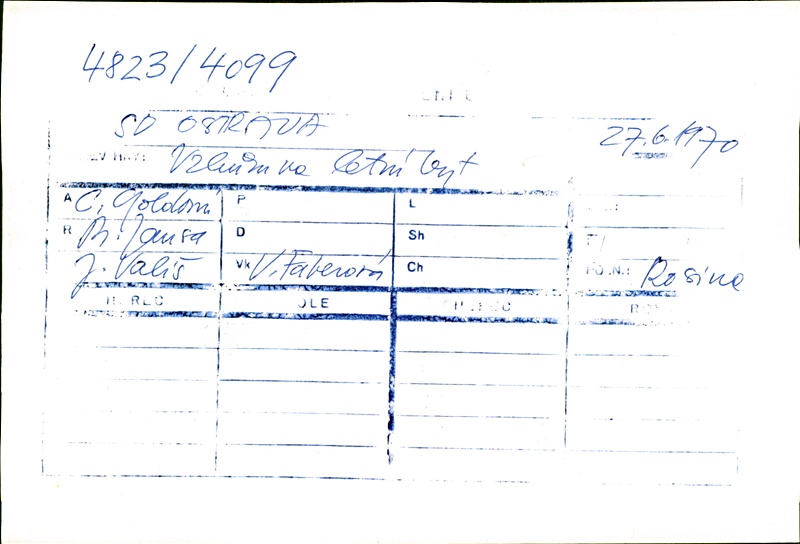 4823/4099
SD OSTRAVA
27.6.1970
Vzhůru na letní byt
A C. Goldoni P L
R R. Jansa D Sh
J. Vališ Vk V. Faberová Ch
Rosina